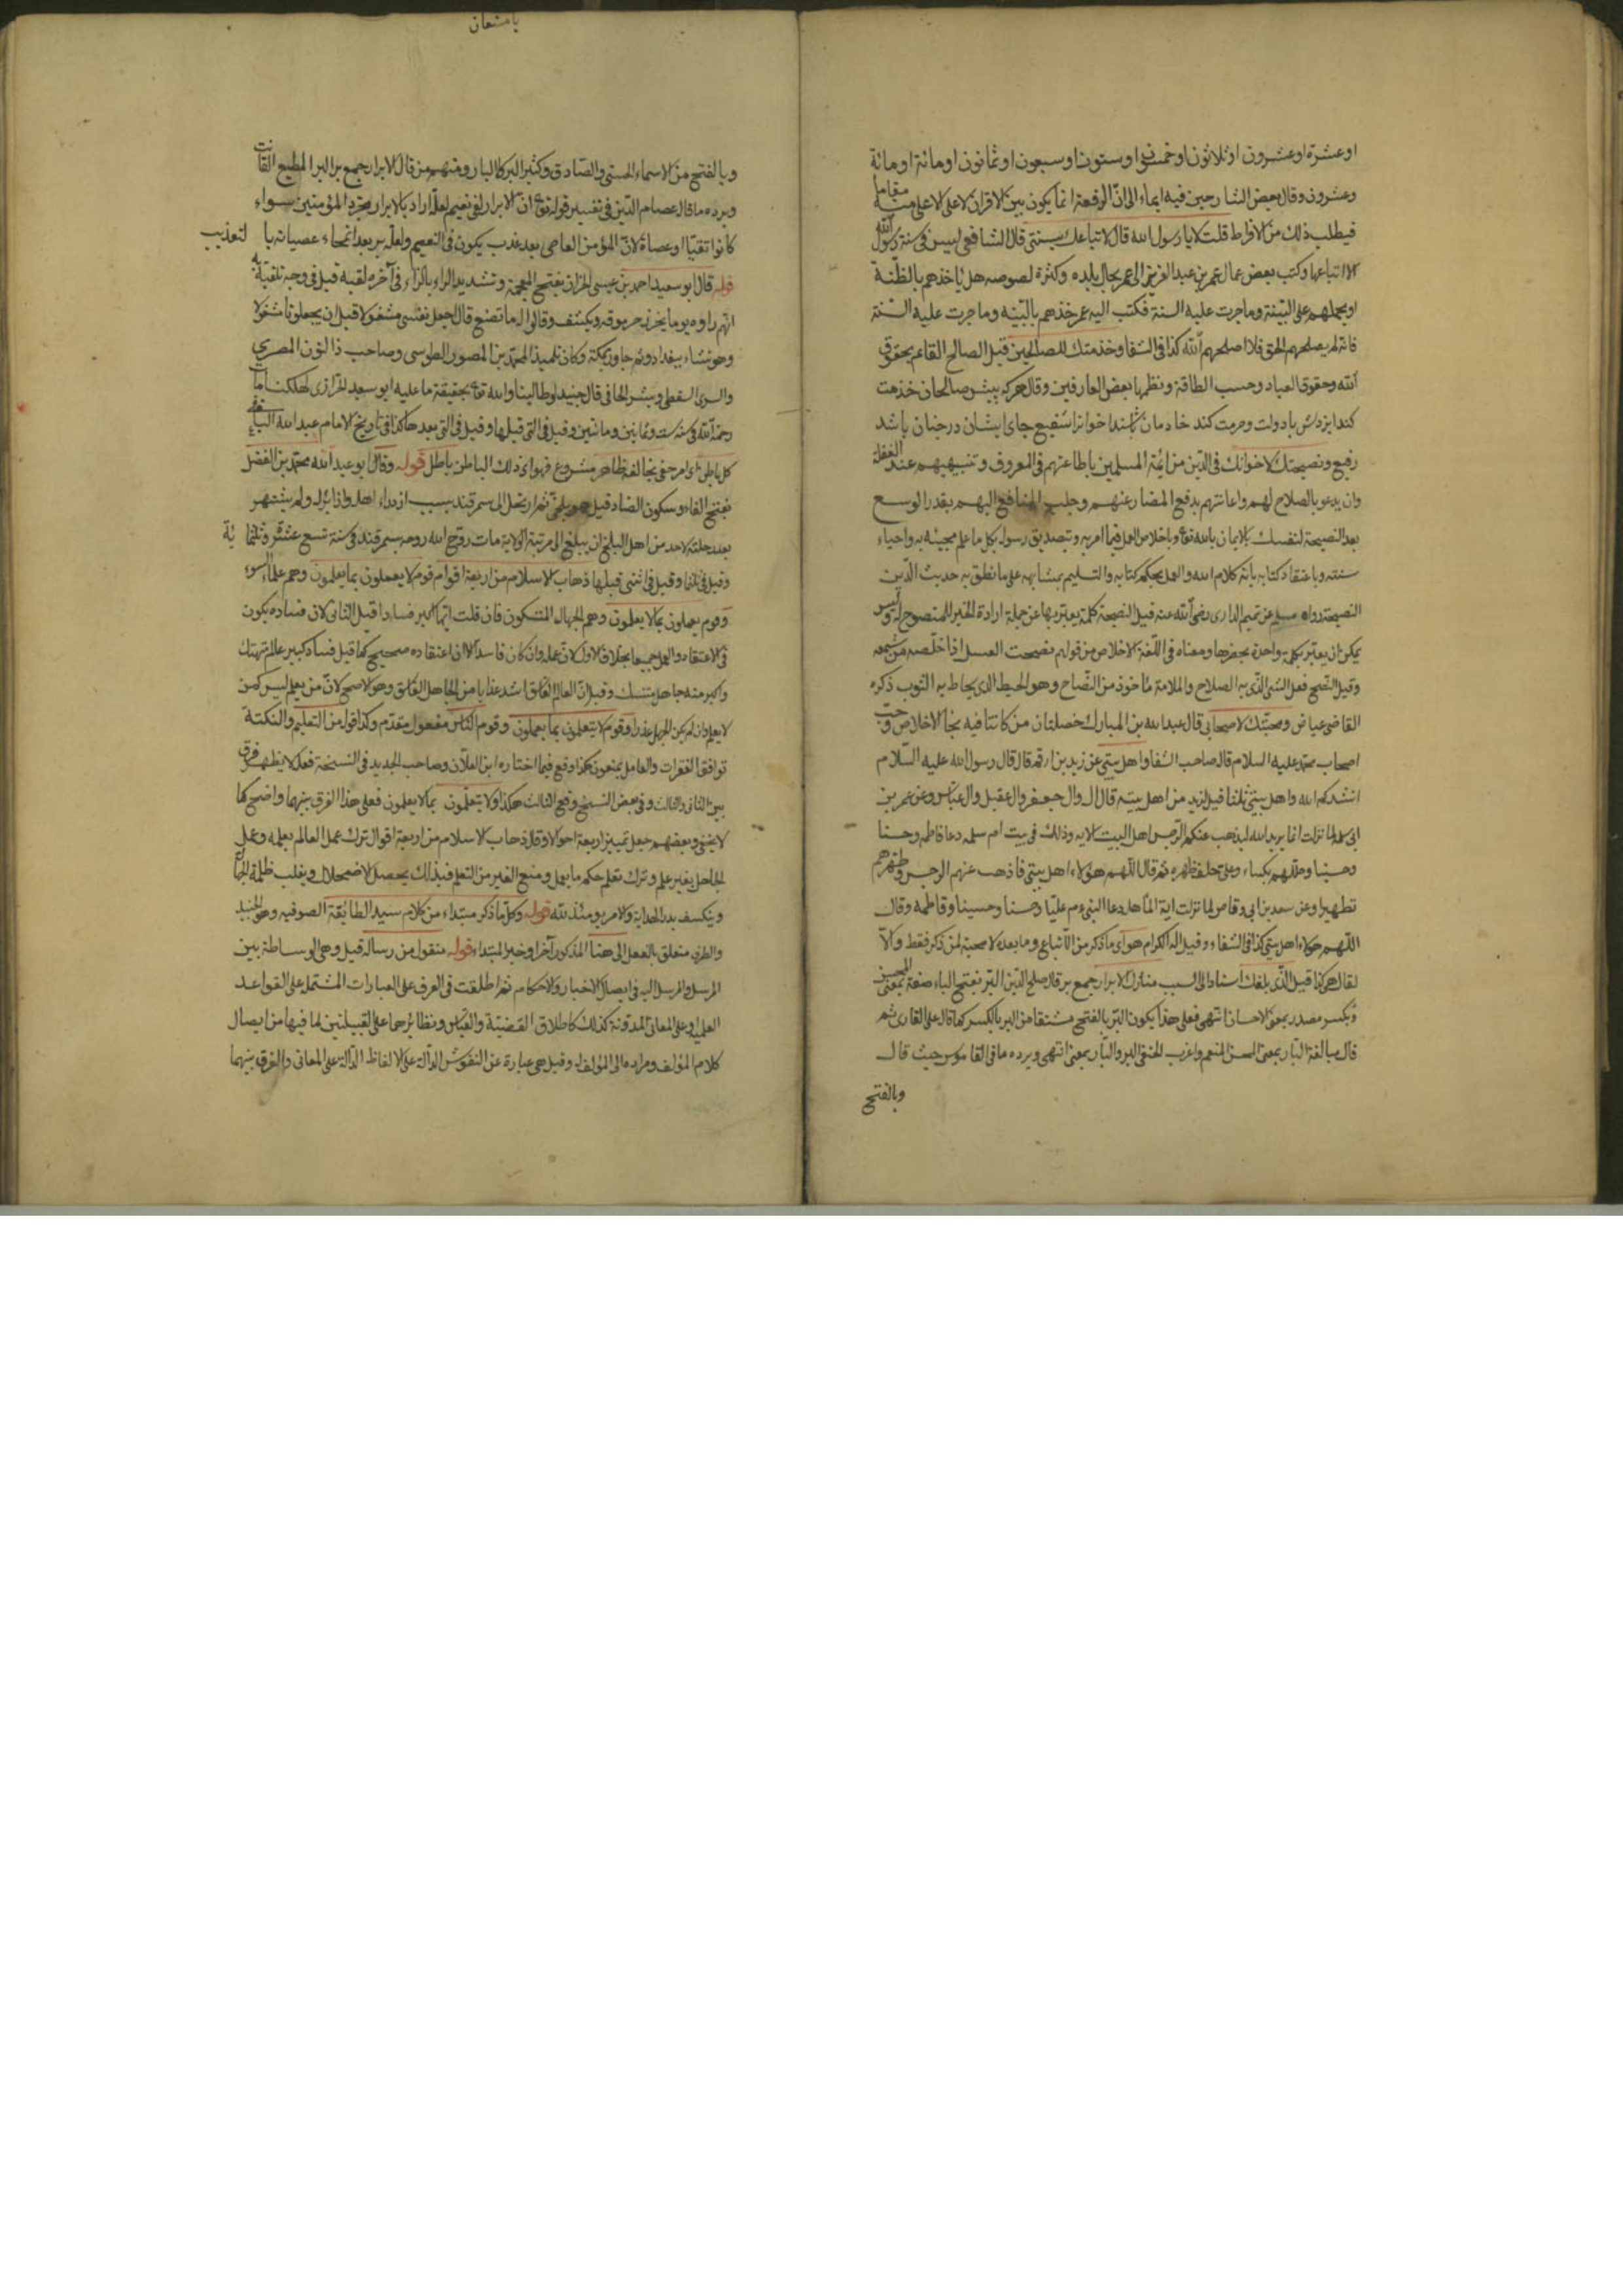 او عشرة او عشرون او ثلاثون او خمسون او ستون او سبعون او ثمانون او مائة او مائة
وعشرون وقال بعض الشارحين فيه ايماء الى ان الرفعة انما يكون بين الاقران لا على الاعلى منه مقاما
فيطلب ذلك من الافراط قلت لا يا رسول الله قال لاتباعك سنتى قال الشافعى ليس فى سنة رسول الله
الا اتباعها وكتب بعض عمال عمر بن عبد العزيز الى عمر بحال بلده وكثرة لصوصه هل ياخذهم بالظنة
او يحملهم على البينة وما جرت عليه السنة فكتب اليه عمر خذهم بالبينه وما جرت عليه السنة
فان لم يصلحهم الحق فلا اصلحهم الله كذا فى الشفا وخدمتك للصالحين قيل الصالح القائم بحقوق
الله وحقوق العباد وحسب الطاقة ونظر بعض العارفين وقال هركه پيش صالحان خدمت
كند ايزدش با دولت وحرمت كند خادمان باشند اخوانرا شفيع جاى ايشان در جنان باشد
رفيع ونصيحتك لاخوانك فى الدين من ائمة المسلمين باطاعتهم فى المعروف وتنبيههم عند الغفلة
وان يدعو بالصلاح لهم واعانتهم بدفع المضار عنهم وجلب المنافع اليهم بقدر الوسع
بعد النصيحة لنفسك بالايمان بالله تع وباخلاص العمل فيما امر به وتصديق رسوله بكل ما علم مجيئه به واحياء
سنته وباعتقاد كتابه بانه كلام الله والعمل بحكم كتابه والتسليم بمتشابهه على ما نطق به حديث الدين
النصيحة رواه مسلم عن تميم الدارى رضى الله عنه قيل النصيحة كلمة يعبر بها عن جملة ارادة الخير للمنصوح له وليس
يمكن ان يعبر بكلمة واحدة بحصرها ومعناه فى اللغة الاخلاص من قولهم نصحت العسل اذا خلصته من شمعه
وقيل النصح فعل الشئ الذى به الصلاح والملامة مأخوذ من النصاح وهو الخيط الذى يخاط به الثوب ذكره
القاضى عياض ومحبتك لاصحابى قال عبد الله بن المبارك خصلتان من كانتا فيه نجا الاخلاص وحب
اصحاب محمد عليه السلام قاله صاحب الشفا واهل بيتى عن زيد بن ارقم قال قال رسول الله عليه السلام
انشدكم الله واهل بيتى ثلثا قيل لزيد من اهل بيته قال ال على وال جعفر وال عقيل وال عباس وعن عمر بن
ابى سلمة لما نزلت انما يريد الله ليذهب عنكم الرجس اهل البيت الايه وذلك فى بيت ام سلمه دعا فاطمه وحسنا
وحسينا وجللهم بكساء وعلى خلف ظهره ثم قال اللهم هؤلاء اهل بيتى فاذهب عنهم الرجس وطهرهم
تطهيرا وعن سعد بن ابى وقاص لما نزلت اية المباهلة دعا النبى عم عليا وحسنا وحسينا وفاطمه وقال
اللهم هؤلاء اهل بيتى كذا فى الشفاء وقيل اله الكرام هو اى ما ذكر من الاتباع وما بعده لا محبة لمن ذكر فقط والا
لقال هى كذا قيل الذى بلغك اسنادا الى السبب منازل الابرار جمع بر قال صلح الدين البر بفتح الباء صفة بمعنى المحسن
وبكسر مصدر بمعنى الاحسان انتهى فعلى هذا يكون البر بالفتح مشتقا من البر بالكسر كما قال على القارى ثم
قال مبالغة البار بمعنى المحسن المنعم واغرب الحنفى البر والبار بمعنى انتهى ويرده ما فى القاموس حيث قال
وبالفتح
يا مستعان
وبالفتح من الاسماء الحسنى والصادق وكثير البر كالبار ومنهم من قال الابرار جمع بر البر المطيع القانت
ويرده ما قال عصام الدين فى تفسير قوله تع ان الابرار لفى نعيم لعله اراد بالابرار مجرد المؤمنين سواء
كانوا تقيا او عصاة لان المؤمن العاصى بعد عذب يكون فى النعيم ولعله بر بعد انمحاء عصيانه با لتعذيب
قوله قال ابو سعيد احمد بن عيسى الخراز بفتح المعجمة وتشديد الراء بالزاء فى آخره لقبه قيل فى وجه تلقيبه به
انهم راوه يوما يخرز حربوقه ويكشف وقالوا له ما تصنع قال اجعل نفسى مشغولا قبل ان يجعلونا مشغولا
وهو نشاء ببغداد ثم جاور بمكة وكان تلميذا لمحمد بن المنصور الطوسى وصاحب ذا النون المصرى
والسرى السقطى وبشر الحافى قال جنيد لو طالبنا والله تع بحقيقة ما عليه ابو سعيد الخرازى لهلكنا مات
رحمه الله فى سنه ست وثمانين ومائتين وقيل فى التى قبلها وقيل فى التى بعدها كذا فى تاريخ الامام عبد الله اليافعى
كل باطن اى امر خفى يخالفه ظاهر مشروع فهو اى ذلك الباطن باطل قوله وقال ابو عبد الله محمد بن الفضل
بفتح الفاء وسكون الضاد قيل هو بلخى ثم ارتحل الى سمرقند بسبب ازدراء اهله واذائه له ولم يشتهر
بعد رحلته لاحد من اهل البلخ ان يبلغ الى مرتبة الولاية مات روح الله روحه بسمرقند فى سنة تسع عشر وثلثما ئة
وقيل فى ثلثها وقيل فى اثنى قبلها ذهاب الاسلام من اربعة اقوام قوم لا يعملون بما يعلمون وهم علماء السوء
وقوم يعملون بما لا يعلمون وهم الجهال المتنسكون فان قلت ايهما اكبر فسادا قيل الثانى لان فساده يكون
فى الاعتقاد والعمل جميعا بخلاف الاول لان عمله وان كان فاسدا الا ان اعتقاده صحيح كما قيل فساد كبير عالم متهتك
واكبر منه جاهل متنسك وقيل ان العالم الفاسق اشد عذابا من الجاهل الفاسق وهو الاصح لان من يعلم ليس كمن
لا يعلم وان لم يكن الجهل عذرا وقوم لا يتعلمون بما يعملون وقوم الناس مفعول مقدم وكذا قوله من التعليم والنكتة
توافق الفقرات والعامل يمنعون هكذا وقع فيما اختاره ابن العلان وصاحب الجديد فى النسخة فعلى لا يظهر فرق
بين الثانى والثالث وفى بعض النسخ وقع الثالث هكذا ولا يتعلمون بما لا يعلمون فعلى هذا الفرق بينهما واضح كما
لا يخفى وبعضهم جعل تمييز اربعة احوالا وقال ذهاب الاسلام من اربعة اقوال ترك عمل العالم بعلمه وعمل
الجاهل بغير علم وترك تعلم حكم ما يعمل ومنع الغير من التعلم فبذلك يحصل الاضمحلال ويغلب ظلمة الجهال
وينكسف بدر الهداية والامر يومئذ لله قوله وكل ما ذكر مبتداء من كلام سيد الطائفة الصوفيه وهو الجنيد
والظرف متعلق بالفعل الى هنا المذكور آخرا وخبر المبتداء قوله منقول من رسالة قيل وهى الوساطة بين
المرسل والمرسل اليه فى ايصال الاخبار والاحكام ثم اطلقت فى العرف على العبارات المشتملة على القواعد
العلمية وعلى المعانى المدونة كذلك كاطلاق القضية والقياس ونظائرهما على القبيلتين لما فيها من ايصال
كلام المؤلف ومراده الى المؤلف له وقيل هى عبارة عن النقوش الدالة على الالفاظ الدالة على المعانى والفرق بينهما